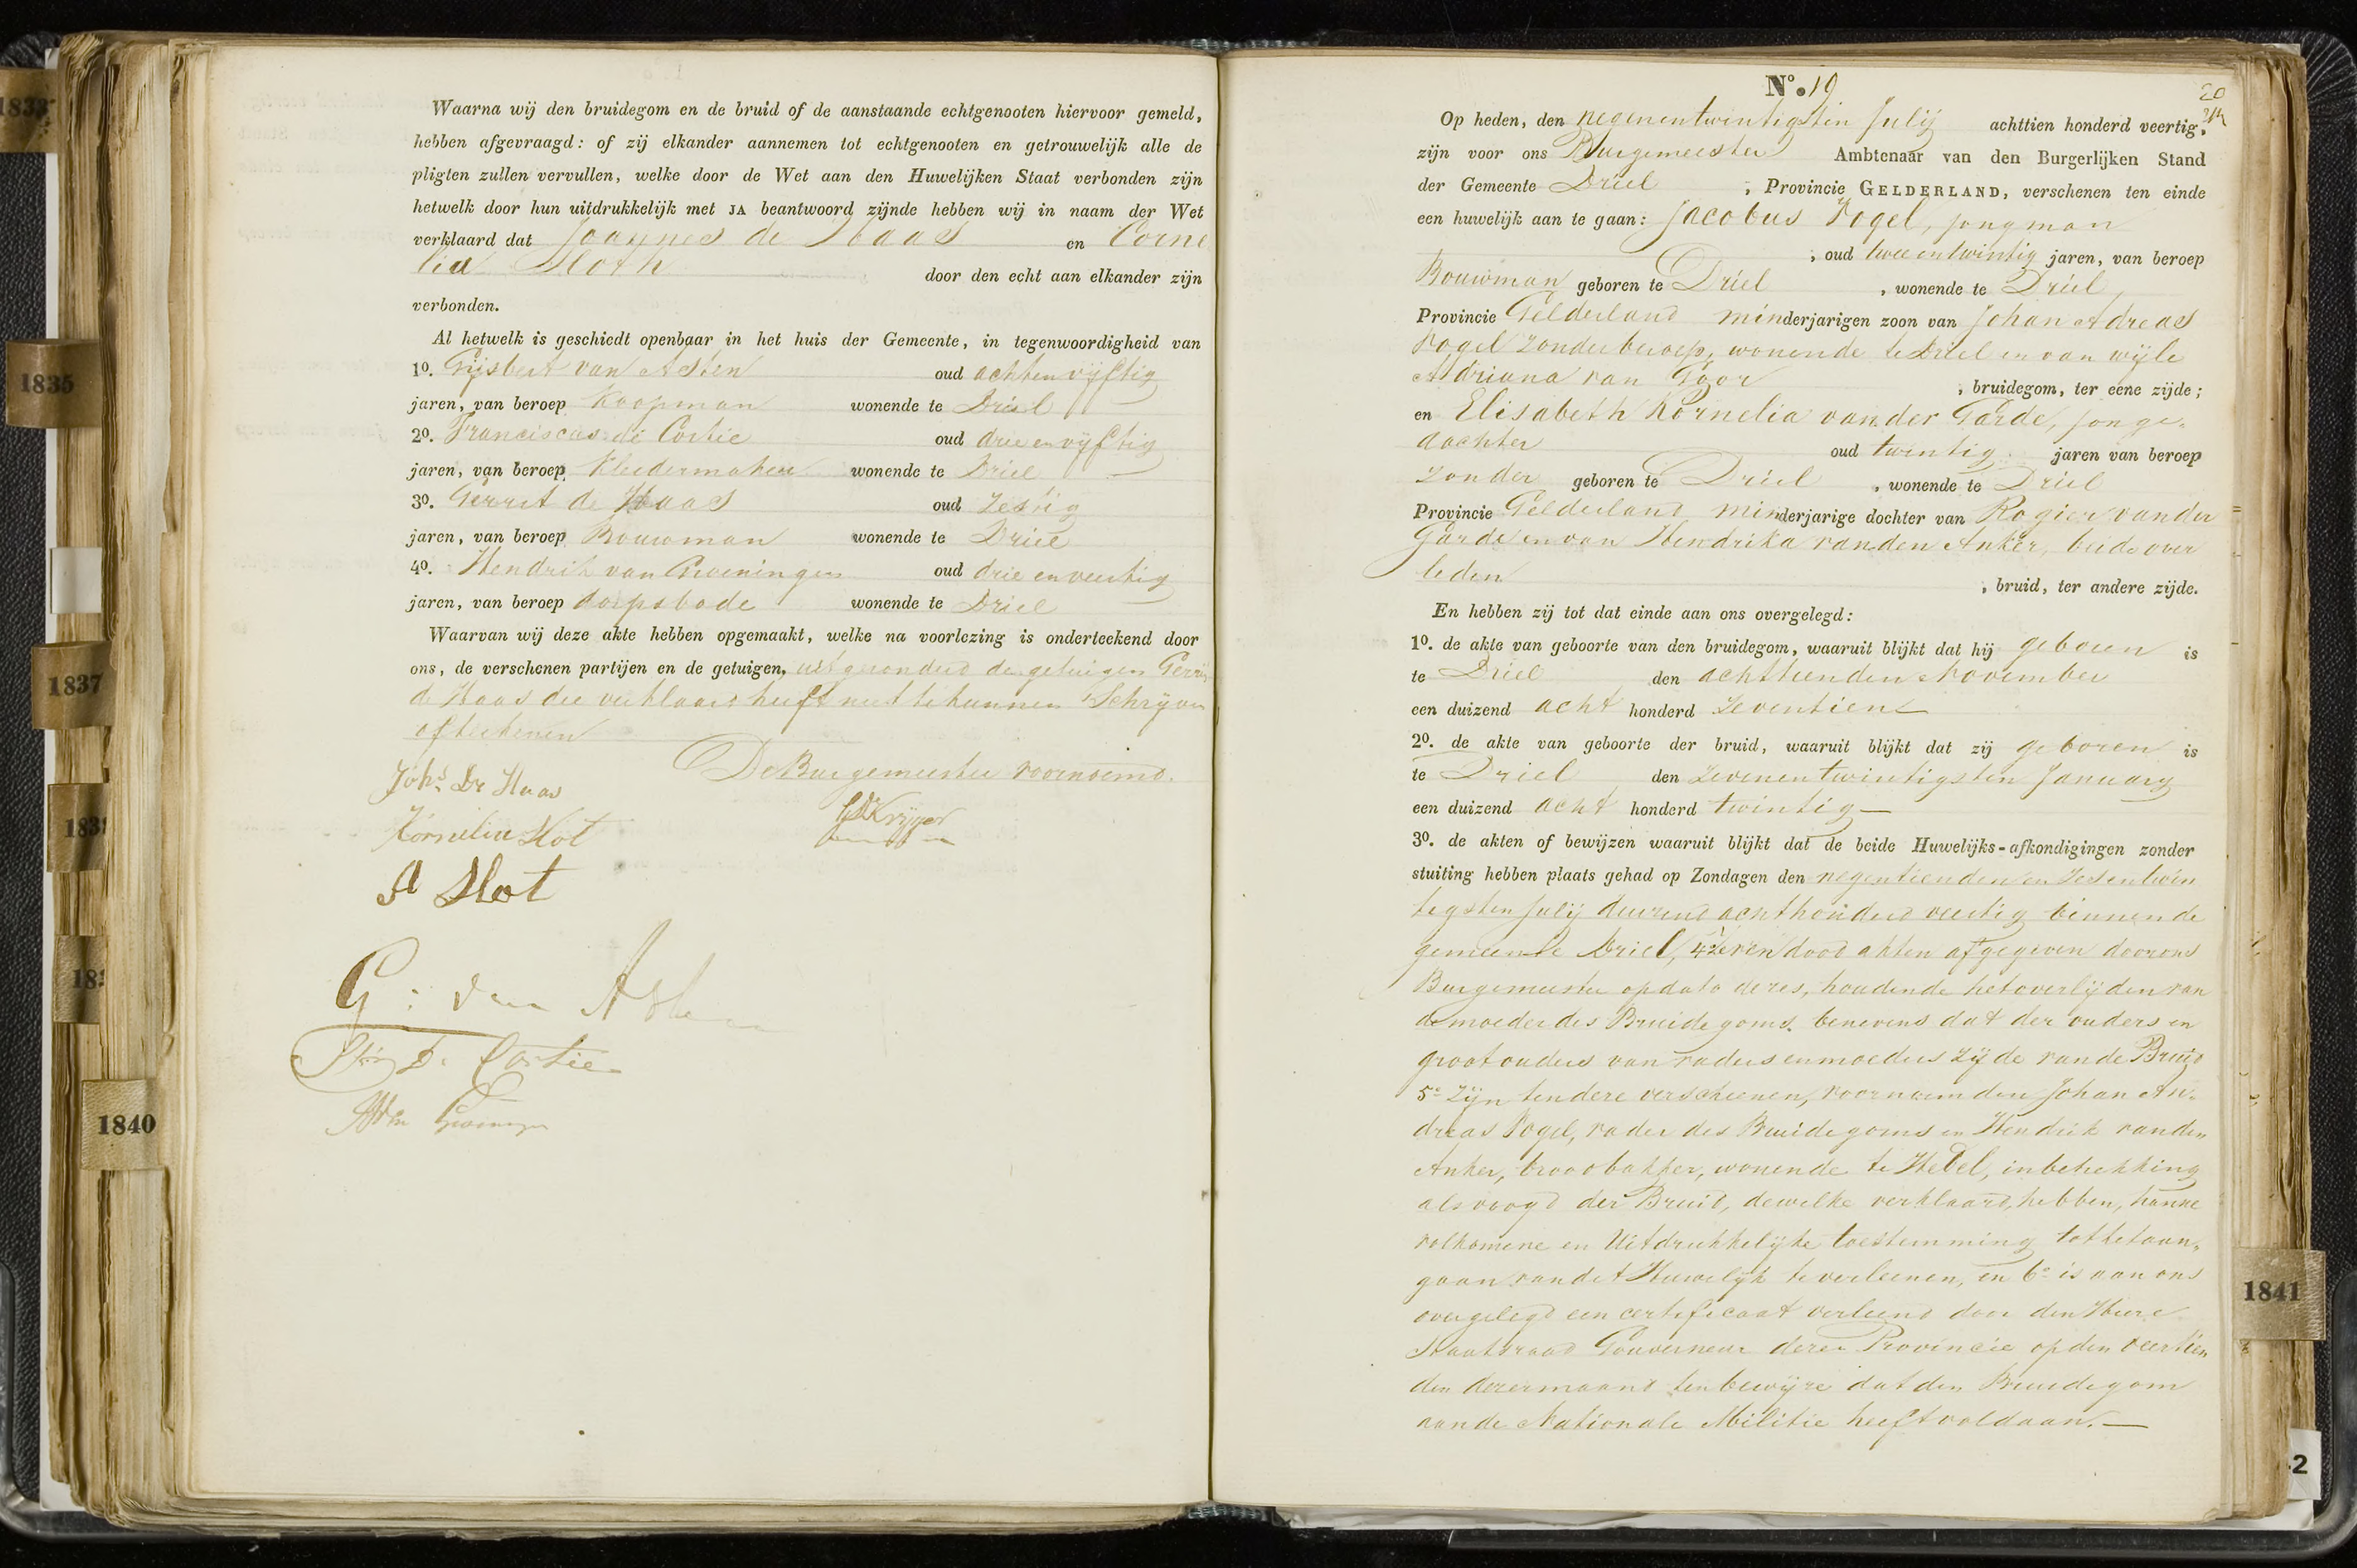 Waarna wij den bruidegom en de bruid of de aanstaande echtgenooten hiervoor gemeld,
hebben afgevraagd: of zij elkander aannemen tot echtgenooten en getrouwelijk alle de
pligten zullen vervullen, welke door de Wet aan den Huwelijken Staat verbonden zijn
hetwelk door hun uitdrukkelijk met JA beantwoord zijnde hebben wij in naam der Wet
verklaard dat Joannes de Haas en Corne
lia Sloth door den echt aan elkander zijn
verbonden.
Al hetwelk is geschiedt openbaar in het huis der Gemeente, in tegenwoordigheid van
1o. Gijsbert van Asten oud achtenvijftig
jaren, van beroep Koopman wonende te Driel
2o. Franciscus de Cortie oud drie en vijftig
jaren, van beroep Kleedermaker wonende te Driel
3o. Gerrit de Haas oud Zestig
jaren, van beroep Bouwman wonende te Driel
4o. Hendrik van Groeningen oud drie en veertig
jaren, van beroep dorpsbode wonende te Driel
Waarvan wij deze akte hebben opgemaakt, welke na voorlezing is onderteekend door
ons, de verschenen partijen en de getuigen, uitgezonderd de getuigen Gerrit
de Haas die verklaard heeft niet te kunnen Schrijven
of teekenen
De Burgemeester voornoemd.
Johs De Haas
Kornelia Slot
A Slot
G: van Asten
D. Cortie
1833
1835
1837
1840
No. 19
20
Op heden, den negenentwintigsten Julij achttien honderd veertig,
zijn voor ons Burgemeester Ambtenaar van den Burgerlijken Stand
der Gemeente Driel, Provincie GELDERLAND, verschenen ten einde
een huwelijk aan te gaan: Jacobus Vogel, jongman
, oud twee en twintig jaren, van beroep
Bouwman geboren te Driel, wonende te Driel,
Provincie Gelderland minderjarigen zoon van Johan Adreas
Vogel zonder beroep, wonende te Driel en van wijle
Adriana van Goor, bruidegom, ter eene zijde;
en Elisabeth Kornelia van der Garde, jonge-
dochter oud twintig jaren van beroep
zonder geboren te Driel, wonende te Driel
Provincie Gelderland minderjarige dochter van Rogier van der
Garde en van Hendrika van den Anker, beide over
leden, bruid, ter andere zijde.
En hebben zij tot dat einde aan ons overgelegd:
1o. de akte van geboorte van den bruidegom, waaruit blijkt dat hij geboren is
te Driel den achttienden November
een duizend acht honderd Zeventien
2o. de akte van geboorte der bruid, waaruit blijkt dat zij geboren is
te Driel den Zevenentwintigsten January
een duizend acht honderd twintig
3o. de akten of bewijzen waaruit blijkt dat de beide Huwelijks-afkondigingen zonder
stuiting hebben plaats gehad op Zondagen den negentienden en Zesentwin
tigsten Julij duizend achthonderd veertig binnen de
gemeente Driel, 4o zeven dood akten afgegeven door ons
Burgemeester op dato dezes, houdende het overlijden van
de moeder des Bruidegoms, benevens dat der ouders en
grootouders van vaders en moeders zijde van de Bruid
5o Zijn ten dere verschenen, voornoemden Johan An-
dreas Vogel, vader des Bruidegoms en Hendrik van den
Anker, broodbakker, wonende te Hedel, in betrekking
als voogd der Bruid, dewelke verklaard hebben, hunne
volkomene en Uitdrukkelijke toestemming tot het aan-
gaan van dit Huwelijk te verleenen, en 6o is aan ons
overgelegd een certificaat verleend door den Heere
Staatsraad Gouverneur dezer Provincie op den veertien
den dezer maand ten bewijze dat den Bruidegom
aan de Nationale Militie heeft voldaan.
1841